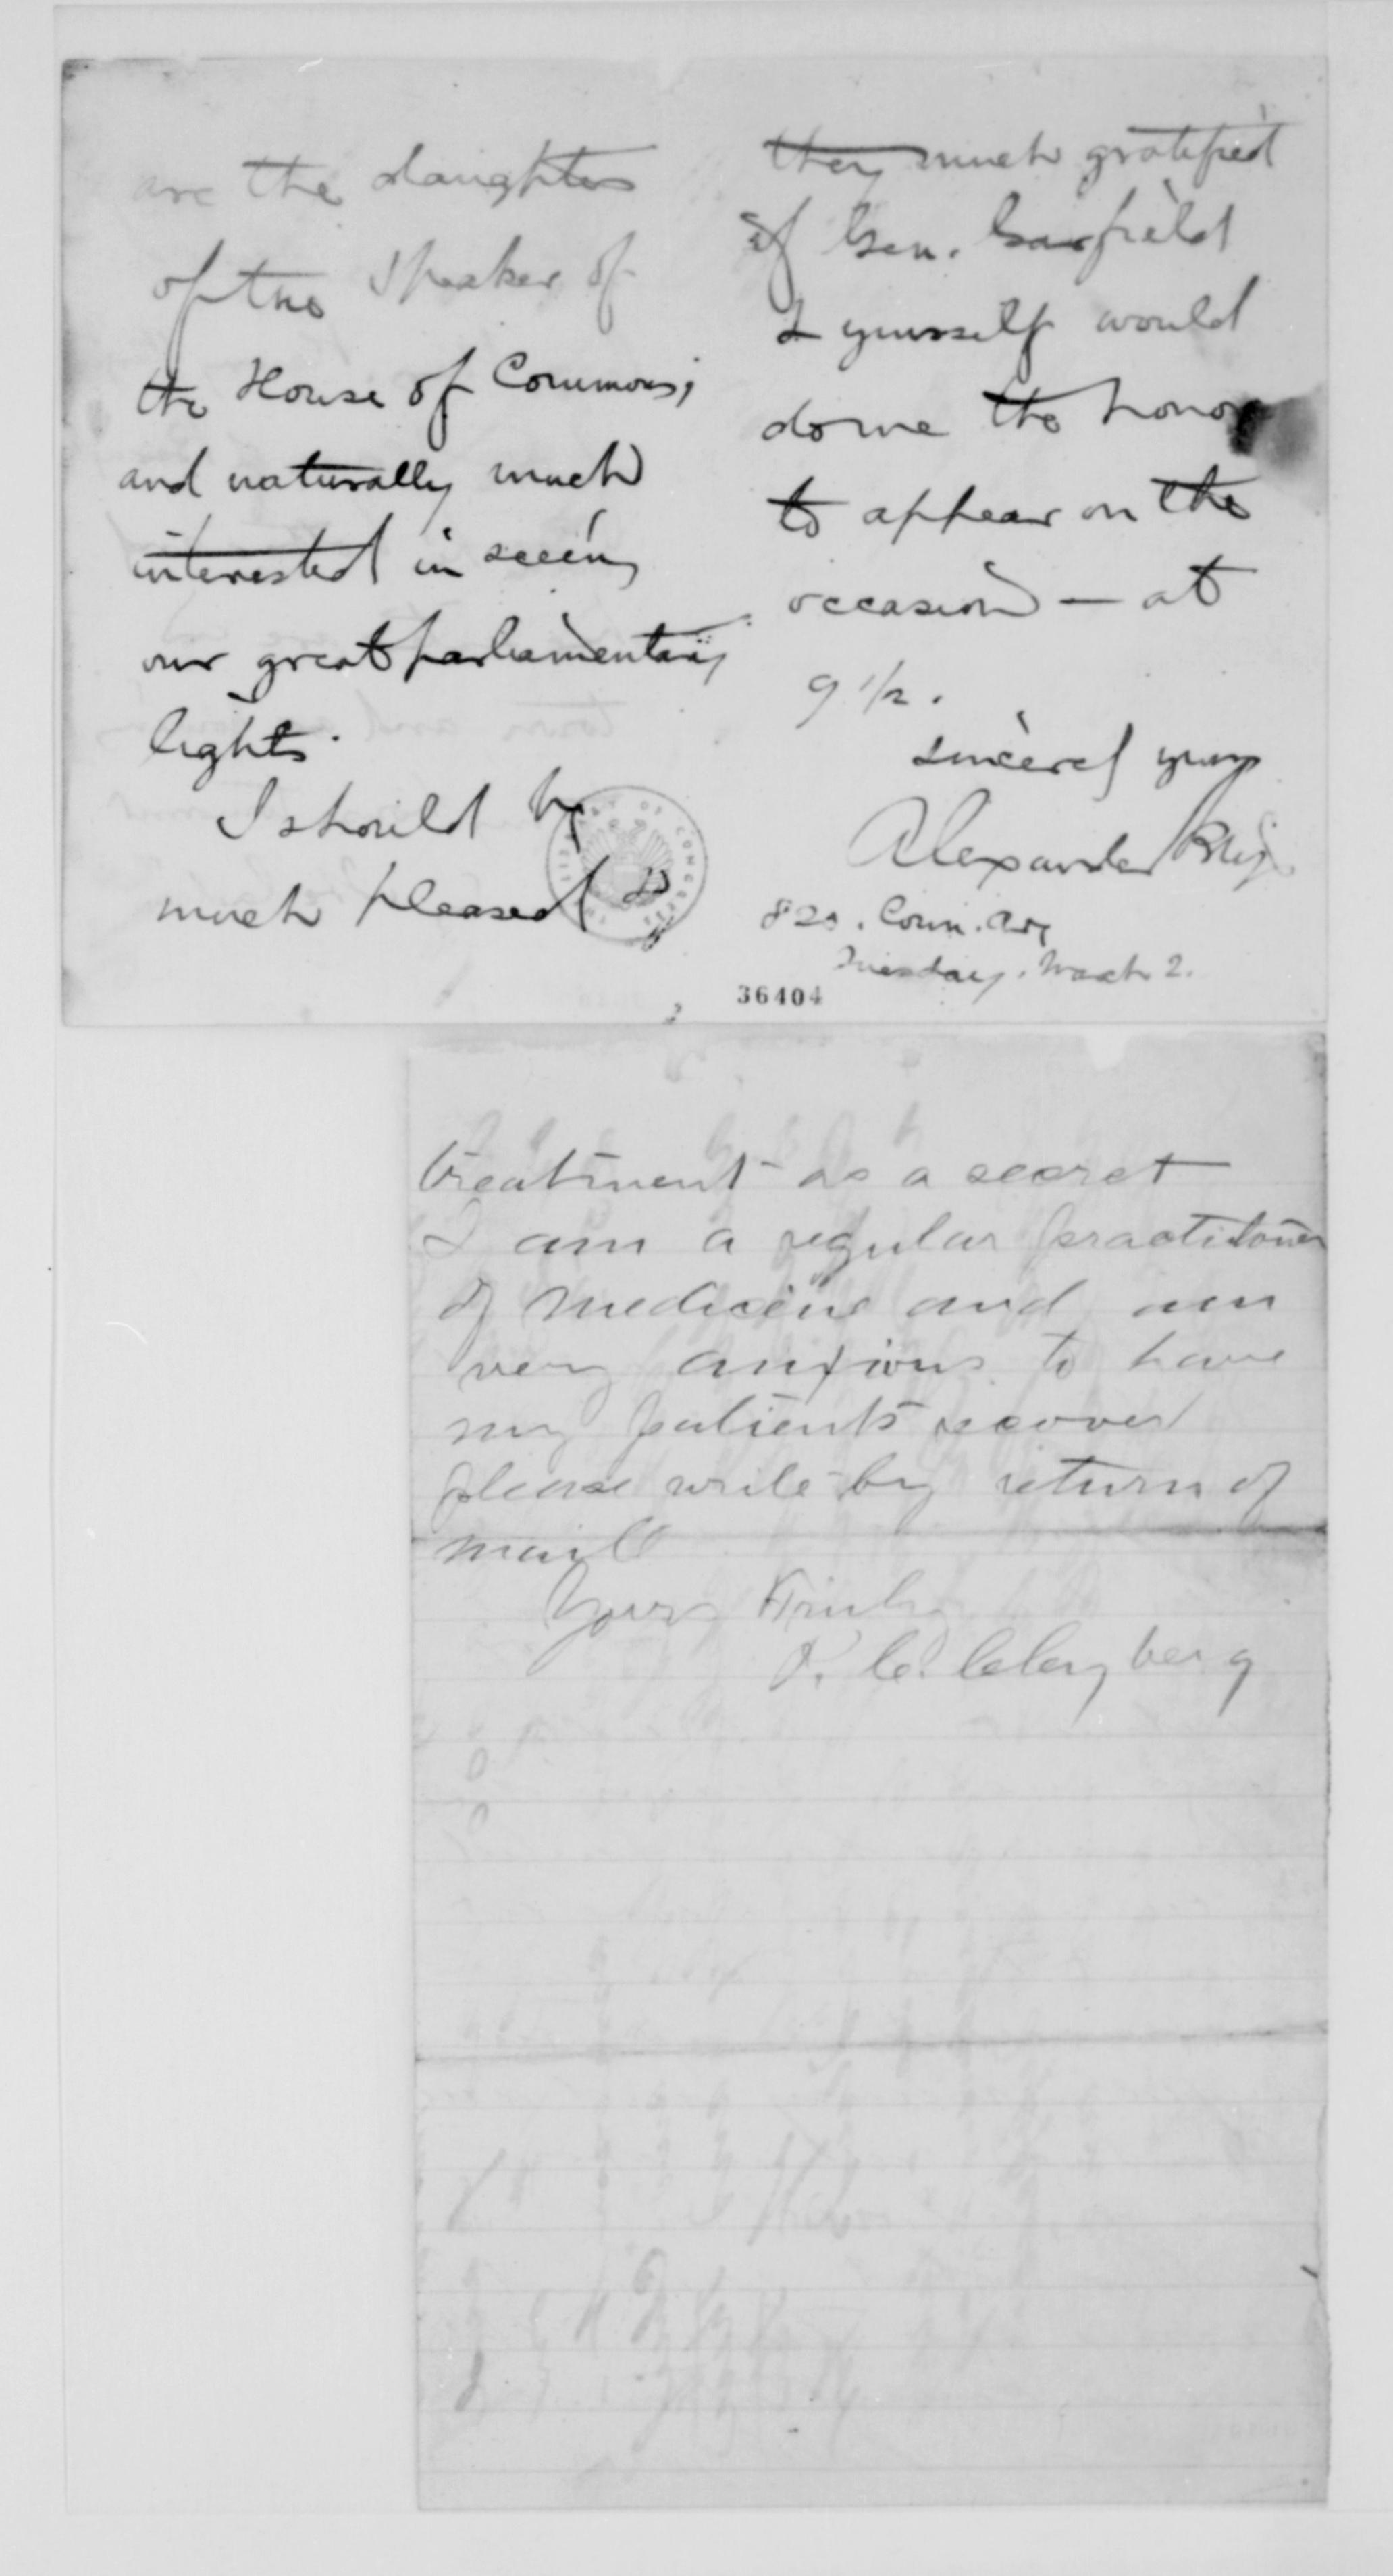 are the daughters
of the Speaker of
the House of Commons;
and naturally much
interested in seeing
our great parliamentary
lights.
I should be
much pleased &
they much gratified
if Gen. Garfield
& yourself would
do me the honor
to appear on the
occasion — at
9 1/2.
Sincerely yours
Alexander
820. Conn. Ave
Tuesday. March 2.
36404
LIBRARY OF CONGRESS
treatment as a secret
I am a regular practitioner
of medicine and am
very anxious to have
my patients recover
please write by return of
mail
Yours Truly
C. Clayberg